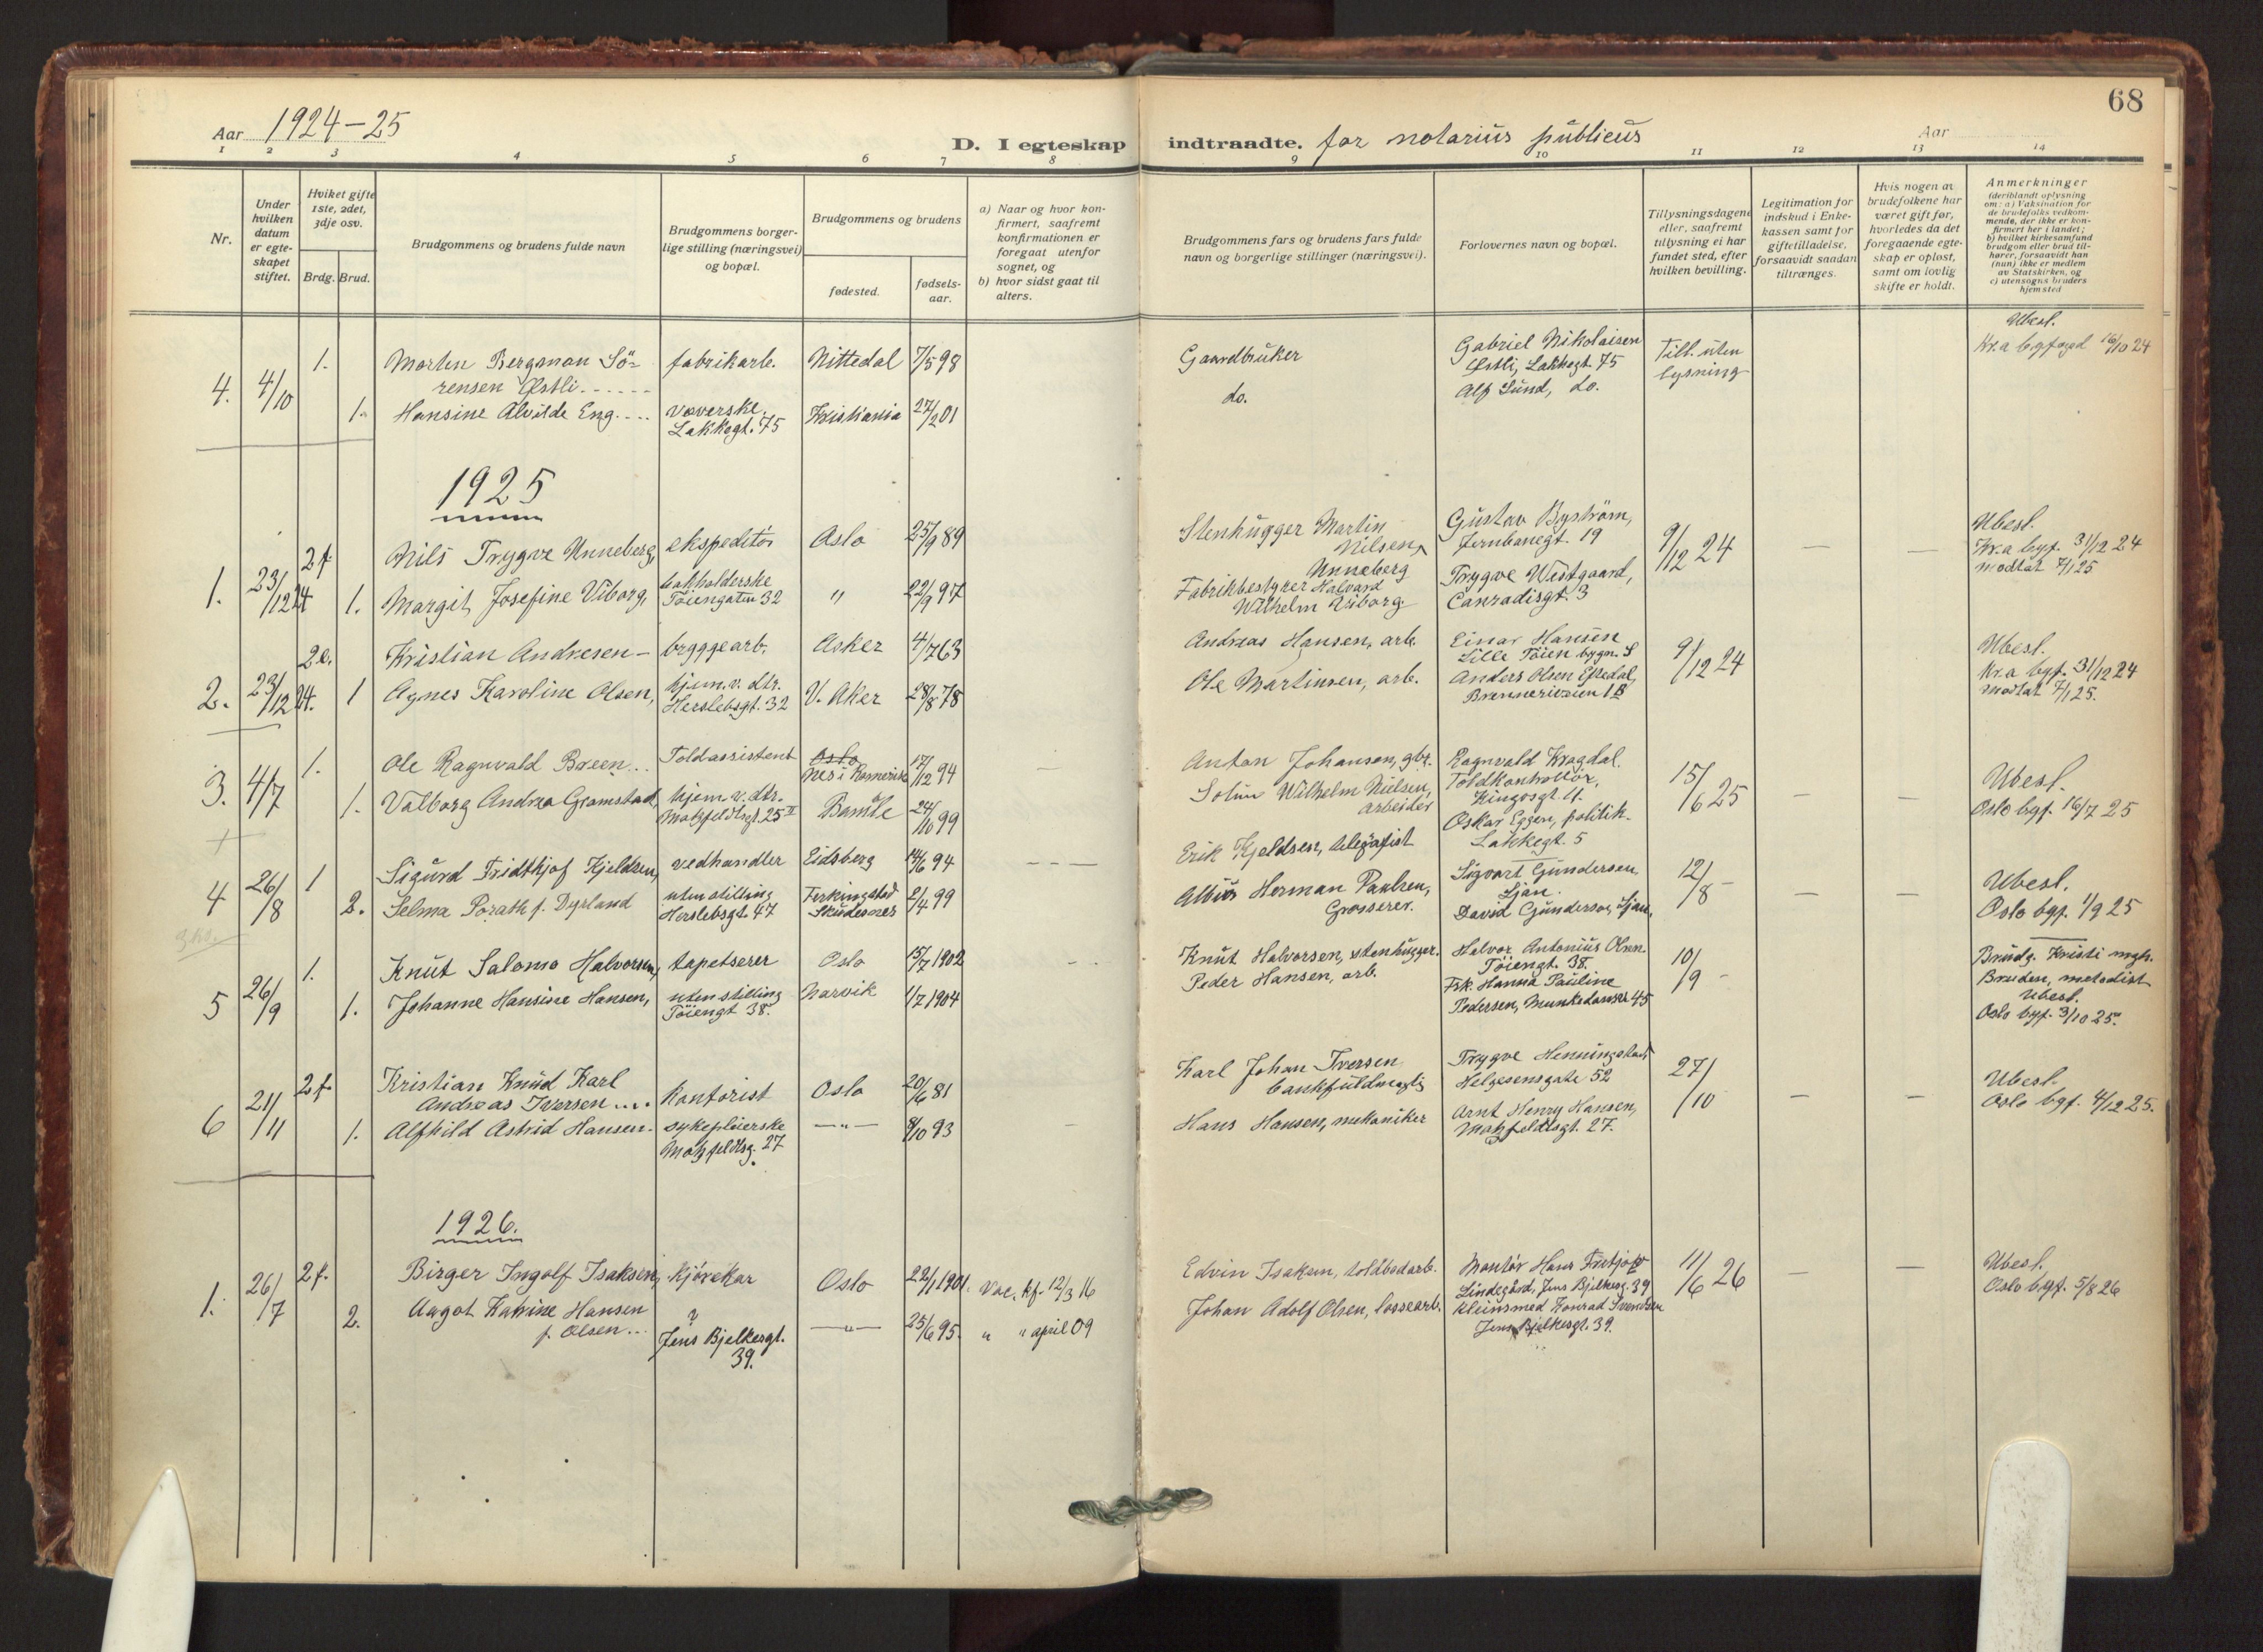 68
Aar 1924-25
D. I egteskap indtraadte. for notarius publicus
Aar
1 2 3 4 5 6 7 8 9 10 11 12 13 14
Nr.
Under hvilken datum er egteskapet stiftet.
Hvilket gifte 1ste, 2det, 3dje osv.
Brdg. Brud.
Brudgommens og brudens fulde navn
Brudgommens borgerlige stilling (næringsvei) og bopæl.
Brudgommens og brudens
fødested.
fødselsaar.
a) Naar og hvor konfirmert, saafremt konfirmationen er foregaat utenfor sognet, og
b) hvor sidst gaat til alters.
Brudgommens fars og brudens fars fulde navn og borgerlige stillinger (næringsvei).
Forlovernes navn og bopæl.
Tillysningsdagene eller, saafremt tillysning ei har fundet sted, efter hvilken bevilling.
Legitimation for indskud i Enkekassen samt for giftetilladelse, forsaavidt saadan tiltrænges.
Hvis nogen av brudefolkene har været gift før, hvorledes da det foregaaende egteskap er opløst, samt om lovlig skifte er holdt.
Anmerkninger
(deriblandt oplysning om: a) Vaksination for de brudefolks vedkommende, der ikke er konfirmert her i landet; b) hvilket kirkesamfund brudgom eller brud tilhører, forsaavidt han (hun) ikke er medlem av Statskirken, og c) utensogns bruders hjemsted
4. 4/10 1. Morten Bergman Sörensen Østli fabrikarb. Nittedal 7/5 98 Gaardbruker Gabriel Nikolaisen Østli, Lakkegt. 75 Till. uten lysning Ubesl. Kr.a byfoged 16/10 24
1. Hansine Alvilde Eng.... væverske. Lakkegt. 75 Kristiania 27/2 01 do. Alf Lund, do.
1925
1. 23/12 24 2f. Nils Trygve Unneberg, ekspeditör Oslo 25/9 89 Stenhugger Martin Nilsen Unneberg Gustav Byström, Jernbanegt. 19 9/12 24 — — Ubesl. Kr.a byf. 31/12 24 modtat 7/1 25
1. Margit Josefine Viborg, bokholderske Töiengaten 32 " 22/9 97 Fabrikbestyrer Halvard Wilhelm Viborg Trygve Westgaard, Conradisgt. 3
2. 23/12 24. 2e. Kristian Andresen — byggearb. Asker 4/7 63 Andreas Hansen, arb. Einar Hansen Lille Töien bygn. S 9/12 24 Ubesl. Kr.a byf. 31/12 24 modtat 7/1 25.
1 Agnes Karoline Olsen, hjem.v. dtr. Herslebsgt. 32 V. Aker 28/8 78 Ole Martinsen, arb. Anders Olsen Brenneriveien 1B
3. 4/7 1. Ole Ragnvald Breen... Toldassistent Oslo Nes i Romerike 17/12 94 — Anton Johansen, gbr. Ragnvald Krogdal. Toldkontrollör, Kingosgt. 4. 15/6 25 — — Ubesl. Oslo byf. 16/7 25
1. Valborg Andrea Gramstad, hjem.v. dtr. Motzfeldtsgt. 25 II Bamle 24/10 99 Wilhelm Nielsen, arbeider Oskar Eggen, politik. Lakkegt. 5
4 26/8 1 Sigurd Fridthjof Kjeldsen, vedhandler Eidsberg 14/6 94 --- Erik Kjeldsen, telegrafist Sigvart Gundersen, Ljan. 12/8 — — Ubesl. Oslo byf. 1/9 25
2. Selma Porath f. Dyrland uten stilling Herslebsgt. 47 Ferkingstad Skudesnes 2/4 99 Herman Paulsen, Grosserer. David Gundersen, Ljan.
5 26/9 1. Knut Salomo Halvorsen, tapetserer Oslo 15/7 1902 Knut Halvorsen, stenhugger. Halvor Antonius Olsen Töiengt. 38. 10/9 Brudg. Kristi mgh. Bruden, metodist
1. Johanne Hansine Hansen, uten stilling Töiengt 38. Narvik 1/7 1904 Peder Hansen, arb. Frk. Hanna Pauline Pedersen, Munkedamsv 45 Ubesl. Oslo byf. 3/10 25.
6 21/11 2f. Kristian Knud Karl Andreas Iversen .... Kontorist Oslo 20/6 81 Karl Johan Iversen bankfuldmegtig Trygve Henningstad Helgesensgate 52 27/10 — — Ubesl. Oslo byf. 4/12 25.
1. Alfhild Astrid Hansen. sykepleierske Motzfeldtsg. 27 —"— 9/10 93 — Hans Hansen, mekaniker Arnt Henry Hansen, Motzfeldtsgt. 27.
1926.
1. 26/7 2f. Birger Ingolf Isaksen, kjörekar Oslo 22/1 1901. Vac. kf. 12/3 16 Edvin Isaksen, toldbodarb. Montör Hans Fritjof Lindegård, Jens Bjelkesg. 39 11/6 26 — — Ubesl. Oslo byf. 5/8 26
2. Aagot Katrine Hansen f. Olsen... ? Jens Bjelkesgt. 39. —"— 25/6 95. " " april 09 Johan Adolf Olsen, lossearb. Kleinsmed Konrad Svendsen Jens Bjelkesgt. 39.